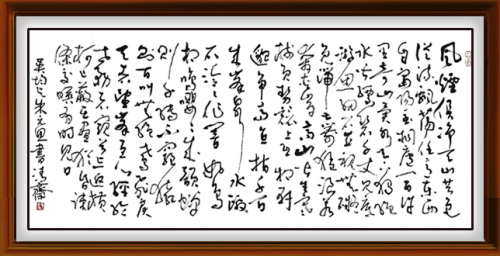 风烟俱净天山共色
从流飘荡任意东西
自富阳至桐庐一百许
里奇山异水天下独绝
水皆缥碧千丈见底
游鱼细石直视无碍
急湍甚箭猛浪若奔
夹岸高山皆生寒
树负势竞上互相轩
邈争高直指千百
成峰泉水激
石泠泠作响好鸟
相鸣嘤嘤成韵蝉
则千转不穷猿
则百叫无绝鸢飞戾
天者望峰息心经纶
世务者窥谷忘反横
柯上蔽在昼犹昏疏
条交映有时见日
吴均与朱元思书